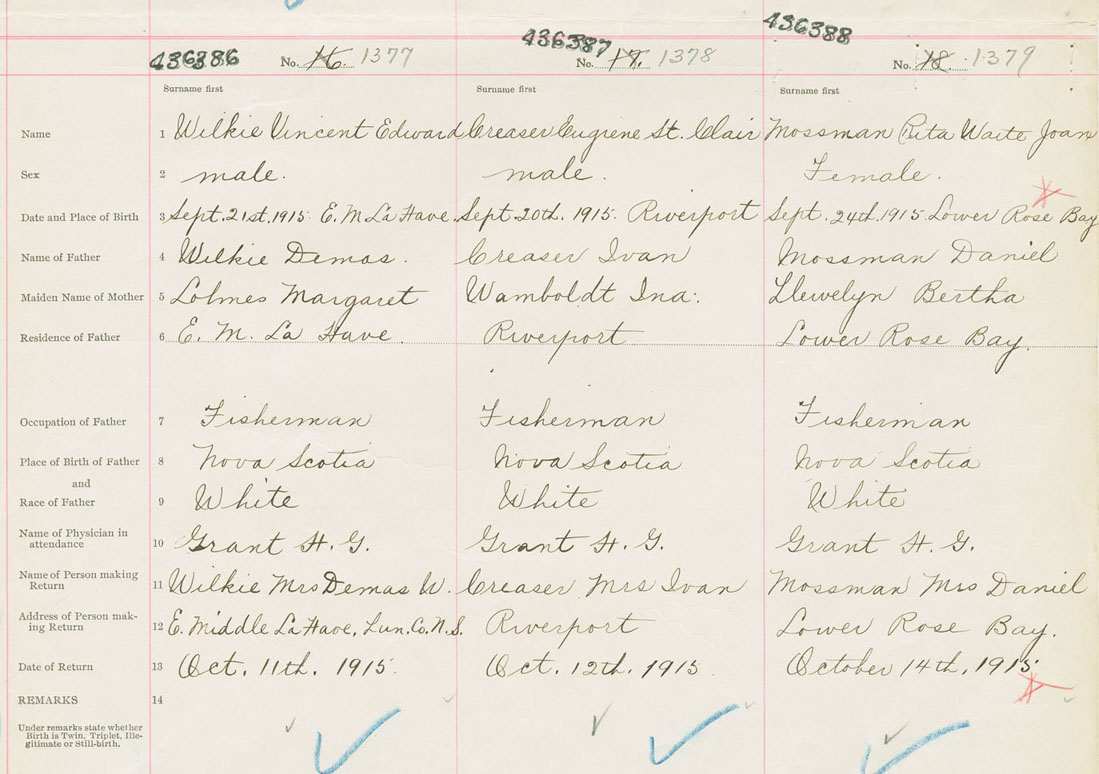 436386 436387 436388
No. 16. 1377 No. 17. 1378 No. 18. 1379
Surname first Surname first Surname first
Name 1 Wilkie Vincent Edward Creaser Eugiene St. Clair Mossman Rita Waite Joan
Sex 2 male. male. Female.
Date and Place of Birth 3 Sept. 21st. 1915. E. M La Have. Sept. 20th. 1915. Riverport Sept. 24th. 1915. Lower Rose Bay
Name of Father 4 Wilkie Demas. Creaser Ivan Mossman Daniel
Maiden Name of Mother 5 Lohnes Margaret Wamboldt Ina. Llewelyn Bertha
Residence of Father 6 E. M. La Have. Riverport Lower Rose Bay.
Occupation of Father 7 Fisherman Fisherman Fisherman
Place of Birth of Father 8 Nova Scotia Nova Scotia Nova Scotia
and
Race of Father 9 White White White
Name of Physician in
attendance 10 Grant H. G. Grant H. G. Grant H. G.
Name of Person making
Return 11 Wilkie Mrs Demas W. Creaser Mrs Ivan Mossman Mrs Daniel
Address of Person mak-
ing Return 12 E. Middle La Have, Lun. Co. N. S. Riverport Lower Rose Bay.
Date of Return 13 Oct. 11th. 1915. Oct. 12th. 1915 October 14th, 1915.
REMARKS 14
Under remarks state whether
Birth is Twin, Triplet, Ille-
gitimate or Still-birth.